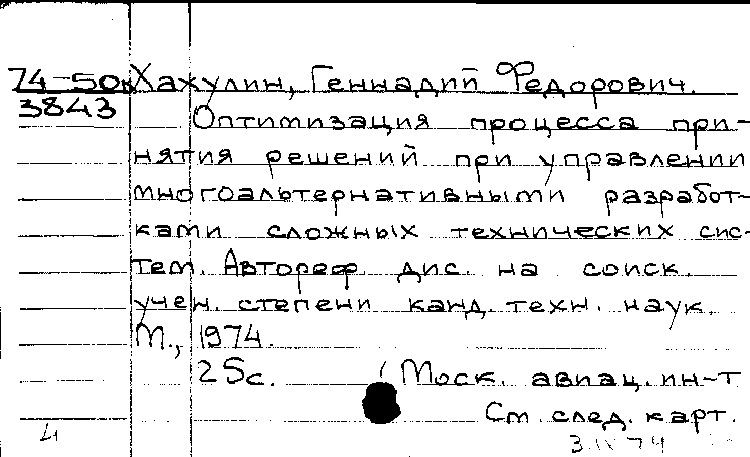 74-50к Хахулин, Геннадий Федорович.
3843
Оптимизация процесса при-
нятия решений при управлении
многоальтернативными разработ-
ками сложных технических сис-
тем. Автореф. дис. на соиск.
учен. степени канд. техн. наук.
М., 1974.
25с. (Моск. авиац. ин-т
См. след. карт.
4
3.IV 74